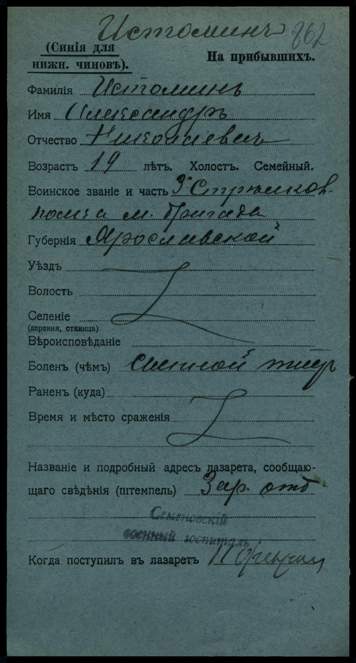 Истоминъ 862
(Синія для
нижн. чиновъ).
На прибывшихъ.
Фамилія Истоминъ
Имя Александръ
Отчество Николаевич
Возрастъ 19 лѣтъ. Холост. Семейный.
Воинское званіе и часть 3 Стрѣлков.
полка м.
Губернія Ярославской
Уѣздъ
Волость
Селеніе
(деревня, станица)
Вѣроисповѣданіе
Боленъ (чѣмъ) сыпной тиф
Раненъ (куда)
Время и мѣсто сраженія
Названіе и подробный адресъ лазарета, сообщаю-
щаго свѣдѣнія (штемпель) Зар. отд
Семеновскій
военный госпиталь
Когда поступил въ лазаретъ 11